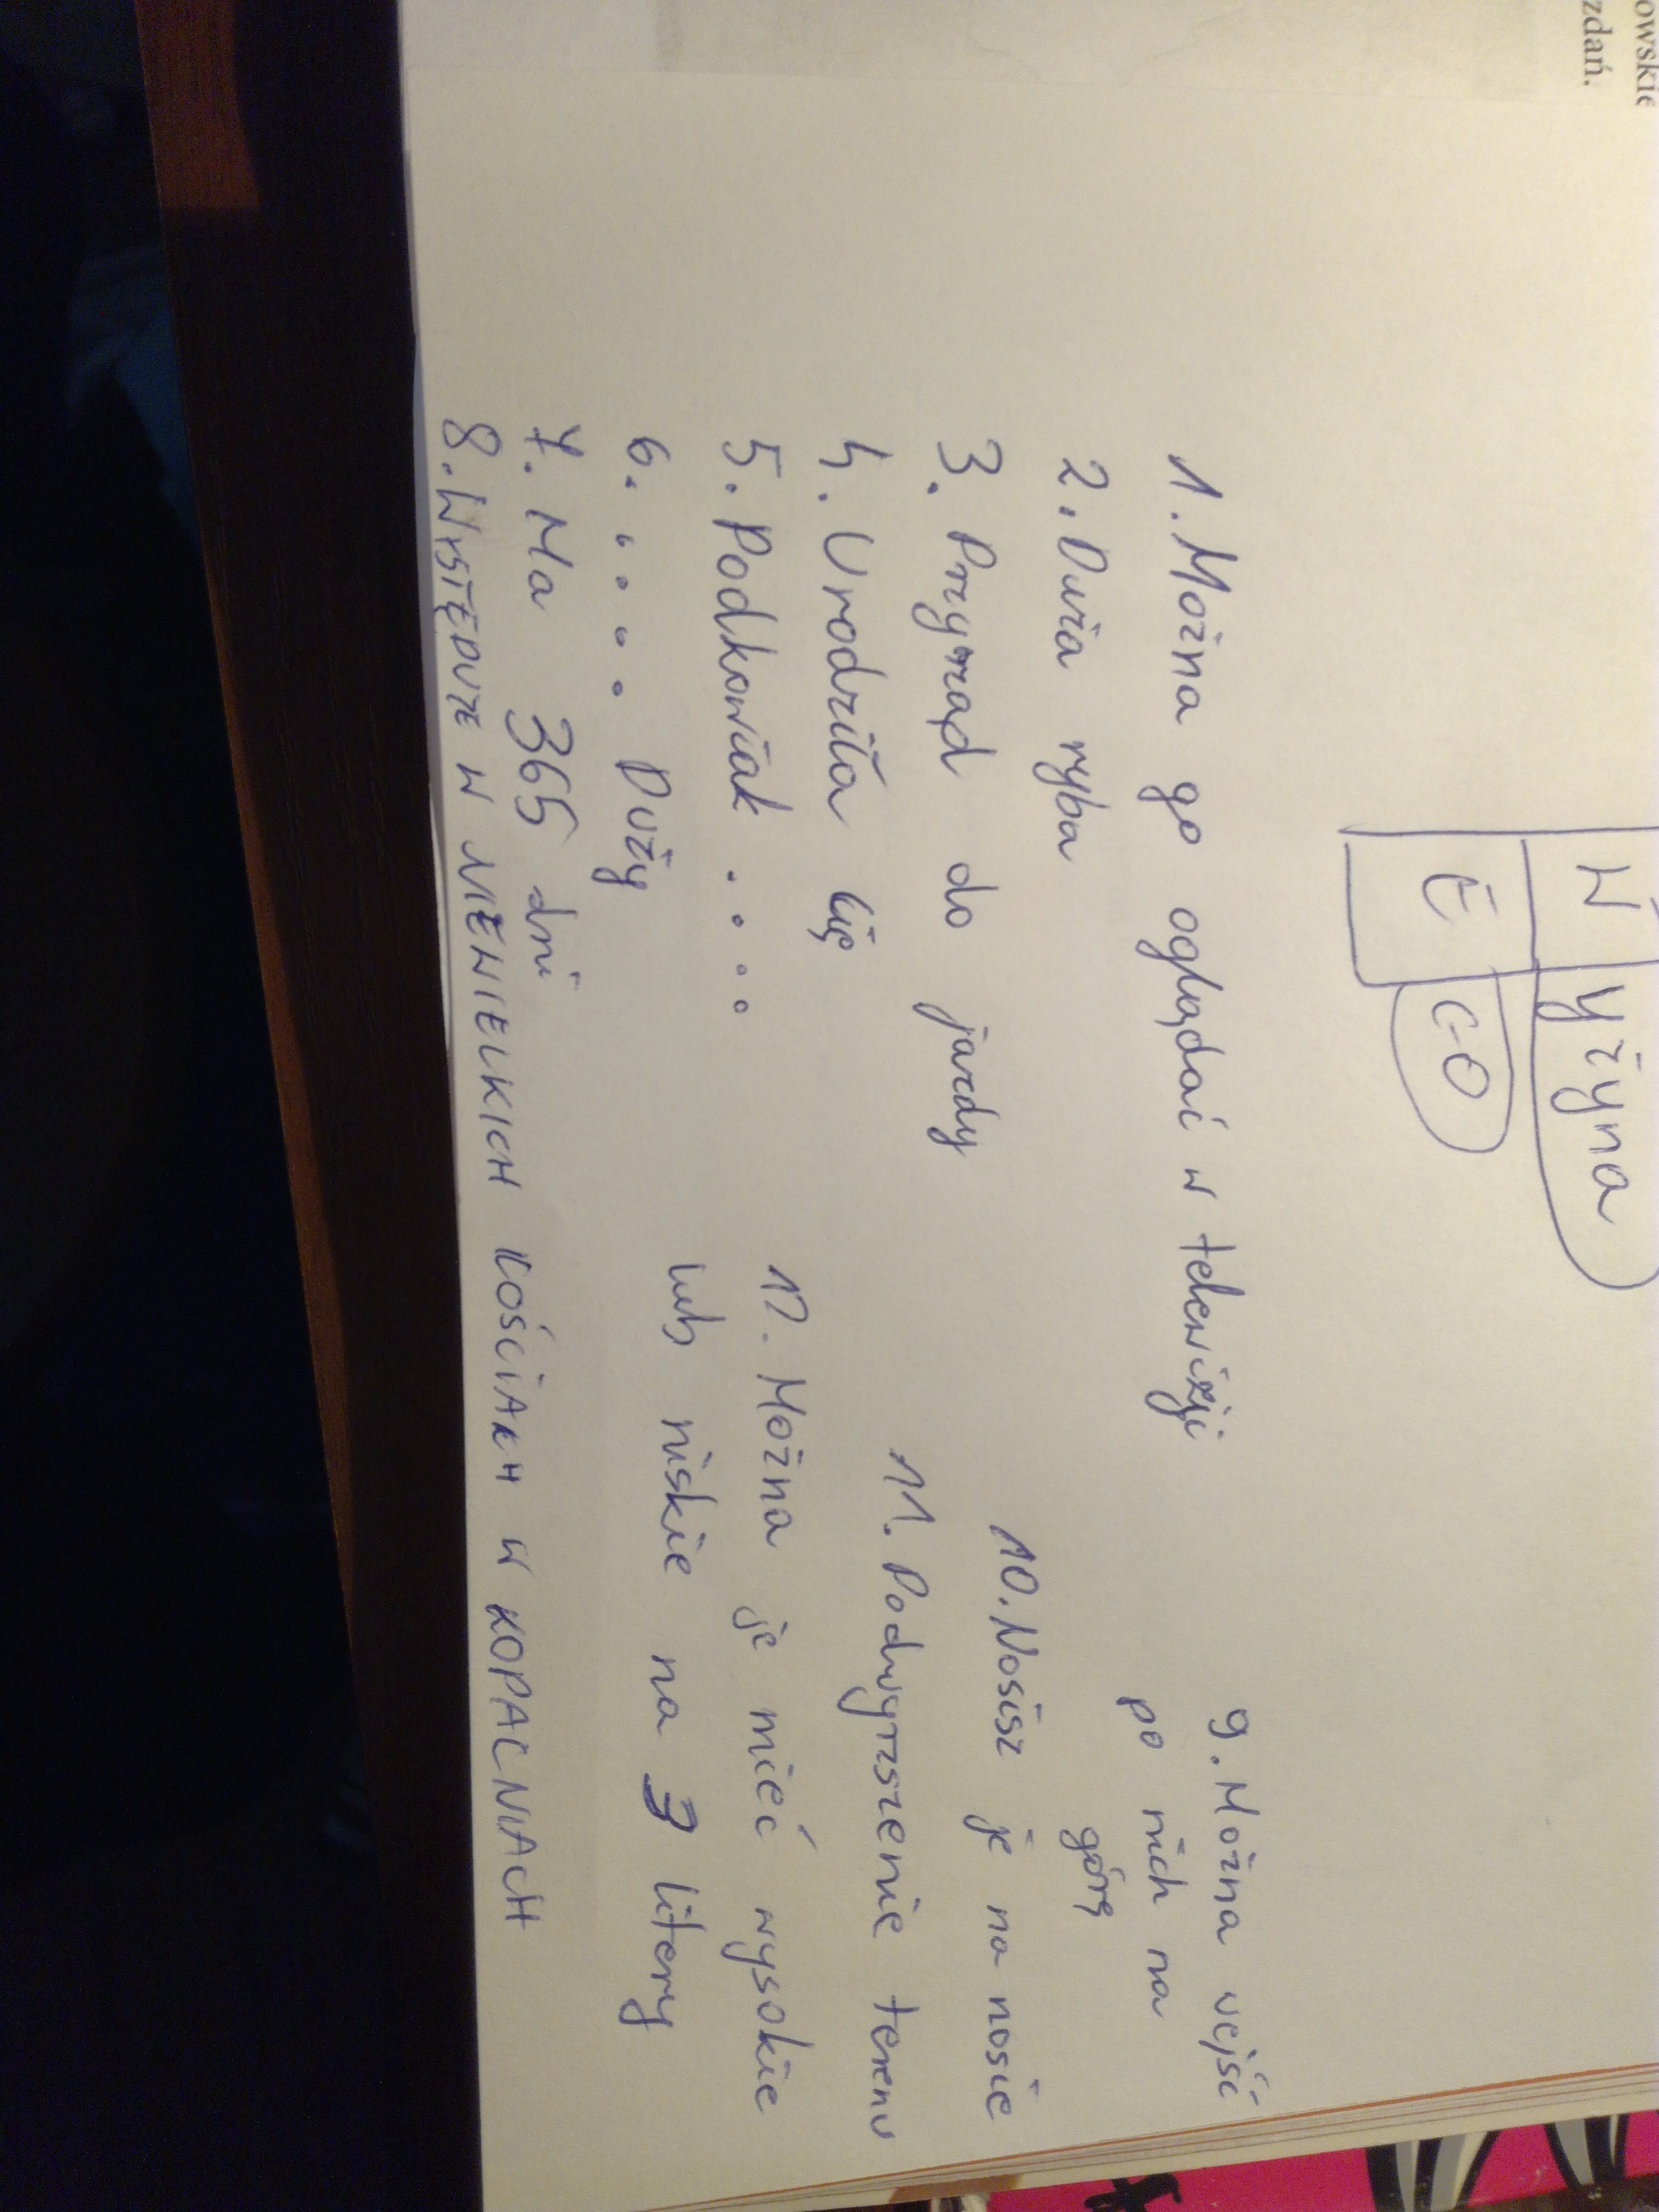 owskie
zdań.
W yżyna
E CO
1. Można go oglądać w telewizji
2. Duża ryba
3. Przyrząd do jazdy
4. Urodziła się
5. Podkowiak . . . .
6. . . . . Duży
7. Ma 365 dni
8. WYSTĘPUJE W NIEWIELKICH ILOŚCIACH W KOPALNIACH
9. Można wejść
po nich na
górę
10. Nosisz je na nosie
11. Podwyższenie terenu
12. Można je mieć wysokie
lub niskie na 3 litery